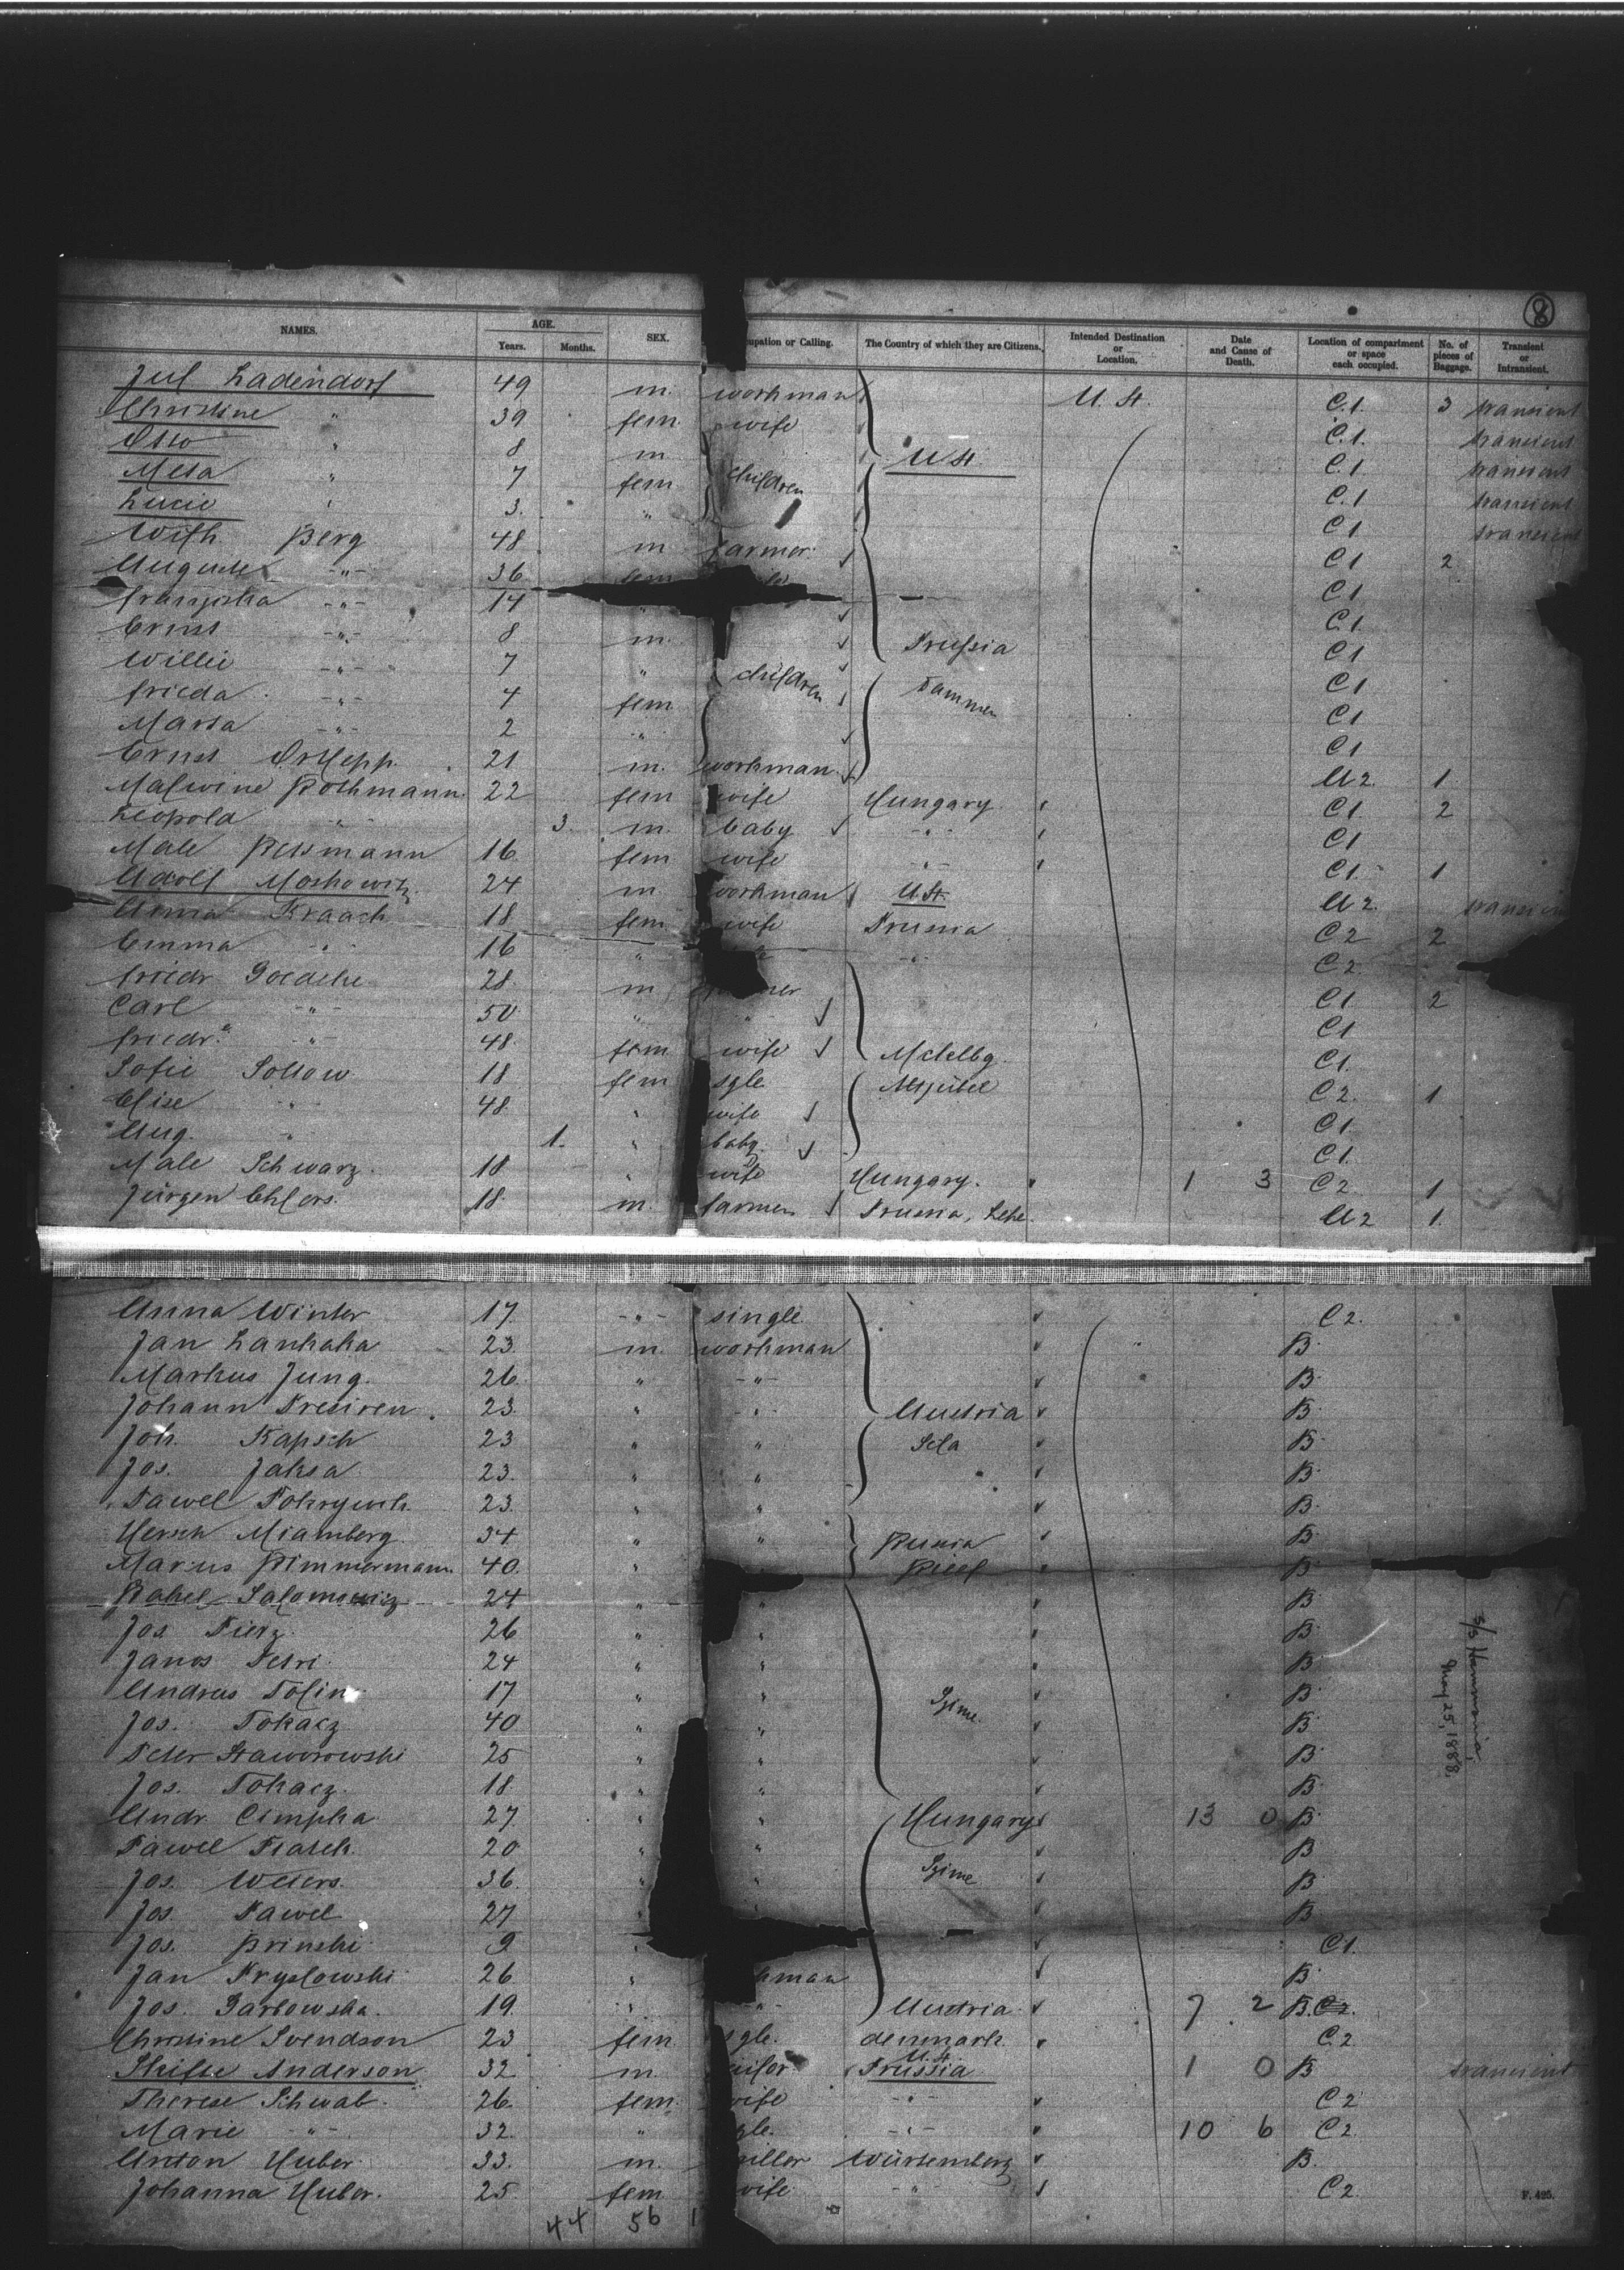 8
NAMES. AGE. SEX. upation or Calling. The Country of which they are Citizens. Intended Destination or Location. Date and Cause of Death. Location of compartment or space each occupied. No. of pieces of Baggage. Transient or Intransient.
Years. Months.
Jul Ladendorf 49 m. workman U. St. C.1. 3 transient
Christine " 39 fem wife C.1. transient
Otto " 8 m. U St. C.1 transient
Meta " 7 fem children C.1 transient
Lucie " 3. " C1 transient
Wilh Berg 48 m farmer C1 2
Auguste -"- 36 fem C1
Franziska -"- 14 " C.1.
Ernst -"- 8 m. Prussia C1
Willie -"- 7 " children C1
Frieda -"- 4 fem Dammen C1
Marta -"- 2 " C1
Ernst 21 m. workman A2. 1
Malwine Rothmann 22 fem wife Hungary C1. 2
Leopold " 3. m. baby -"- C1
Male 16 fem wife -"- C1. 1
Adolf Moskowitz 24 m. workman U.St. A2. transient
Anna Kraach 18 fem wife Prussia C2 2
Emma " 16 " -"- C2.
Friedr Goedcke 28 m C1 2
Carl -"- 50 " " C1
Friedr. " 48 fem wife Meklbg. C1.
Sofie Soltow 18 fem sgle C2. 1
Elise " 48 " wife C1.
Aug. " 1. " baby C1.
Male Schwarz 18 " wife Hungary. 1 3 C2 1
Jürgen Ehlers. 18 m. farmer Prussia, Lehe A2 1.
Anna Winter 17 -"- single C2.
Jan Lankaka 23. m. workman B.
Markus Jung. 26 " -"- B.
Johann 23. " -"- Austria B.
Joh. Kapsch 23 " " B.
Jos. Jaksa 23. " " B.
Pawel 23. " " B.
Hersch Miamberg 34 " " Russia B.
Marcus 40. " B.
Salomowicz 24 " " B.
Jos. 26 " " B.
Janos Petri 24 " " B.
Andras Tolin 17 " " B.
Jos. Tokacz 40 " " B.
Peter Staworowski 25 " " B.
Jos. Tokacz. 18 " " B.
Andr. Cimpka 27 " " Hungary 13 0 B.
Pawel 20 " B
Jos. 36. " B.
Jos. Pawel 27 " B.
Jos. 9 " C1.
Jan 26 " kman B.
Jos. Garbowska. 19. " -"- Austria 7 2 B. C2.
Christine Svendson 23 fem. gle. denmark C.2
Anderson 32 m. U.St. Prussia 1 0 B transient
Therese Schwab. 26. fem. wife -"- C2
Marie -"- 32. " gle. -"- 10 6 C2.
Anton Huber. 33. m. miller Würtemberg B.
Johanna Huber. 25 fem wife -"- C2.
44 56 1
s/s Hammonia,
May 25, 1888.
F. 425.